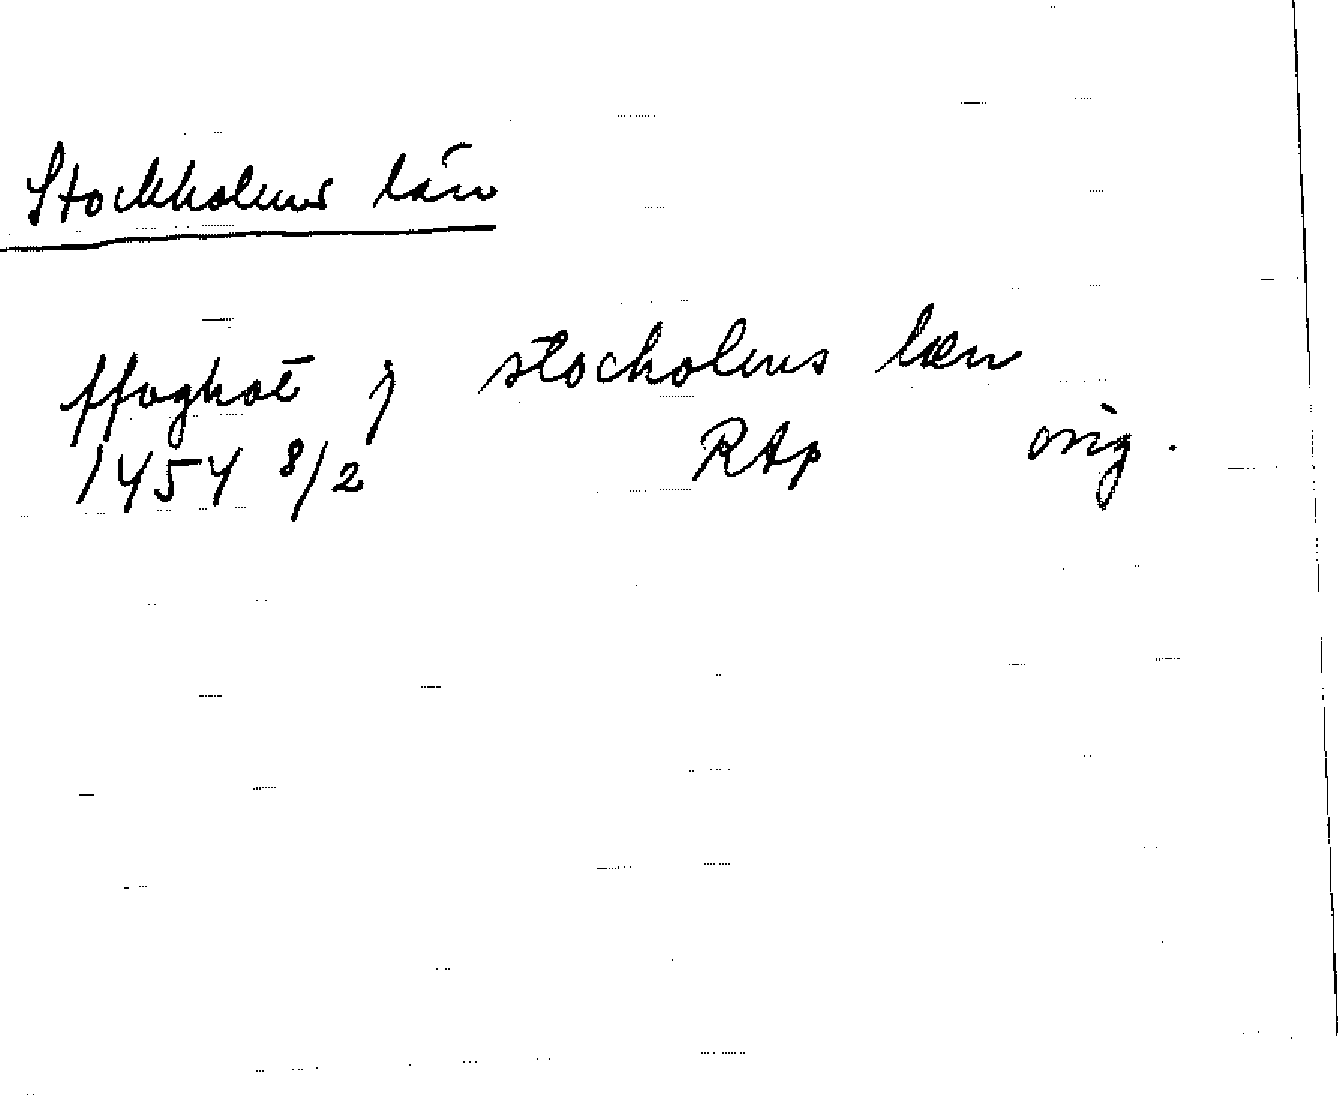 Stockholms län
ffoghat j stocholms læn
1454 8/2 RAp orig.